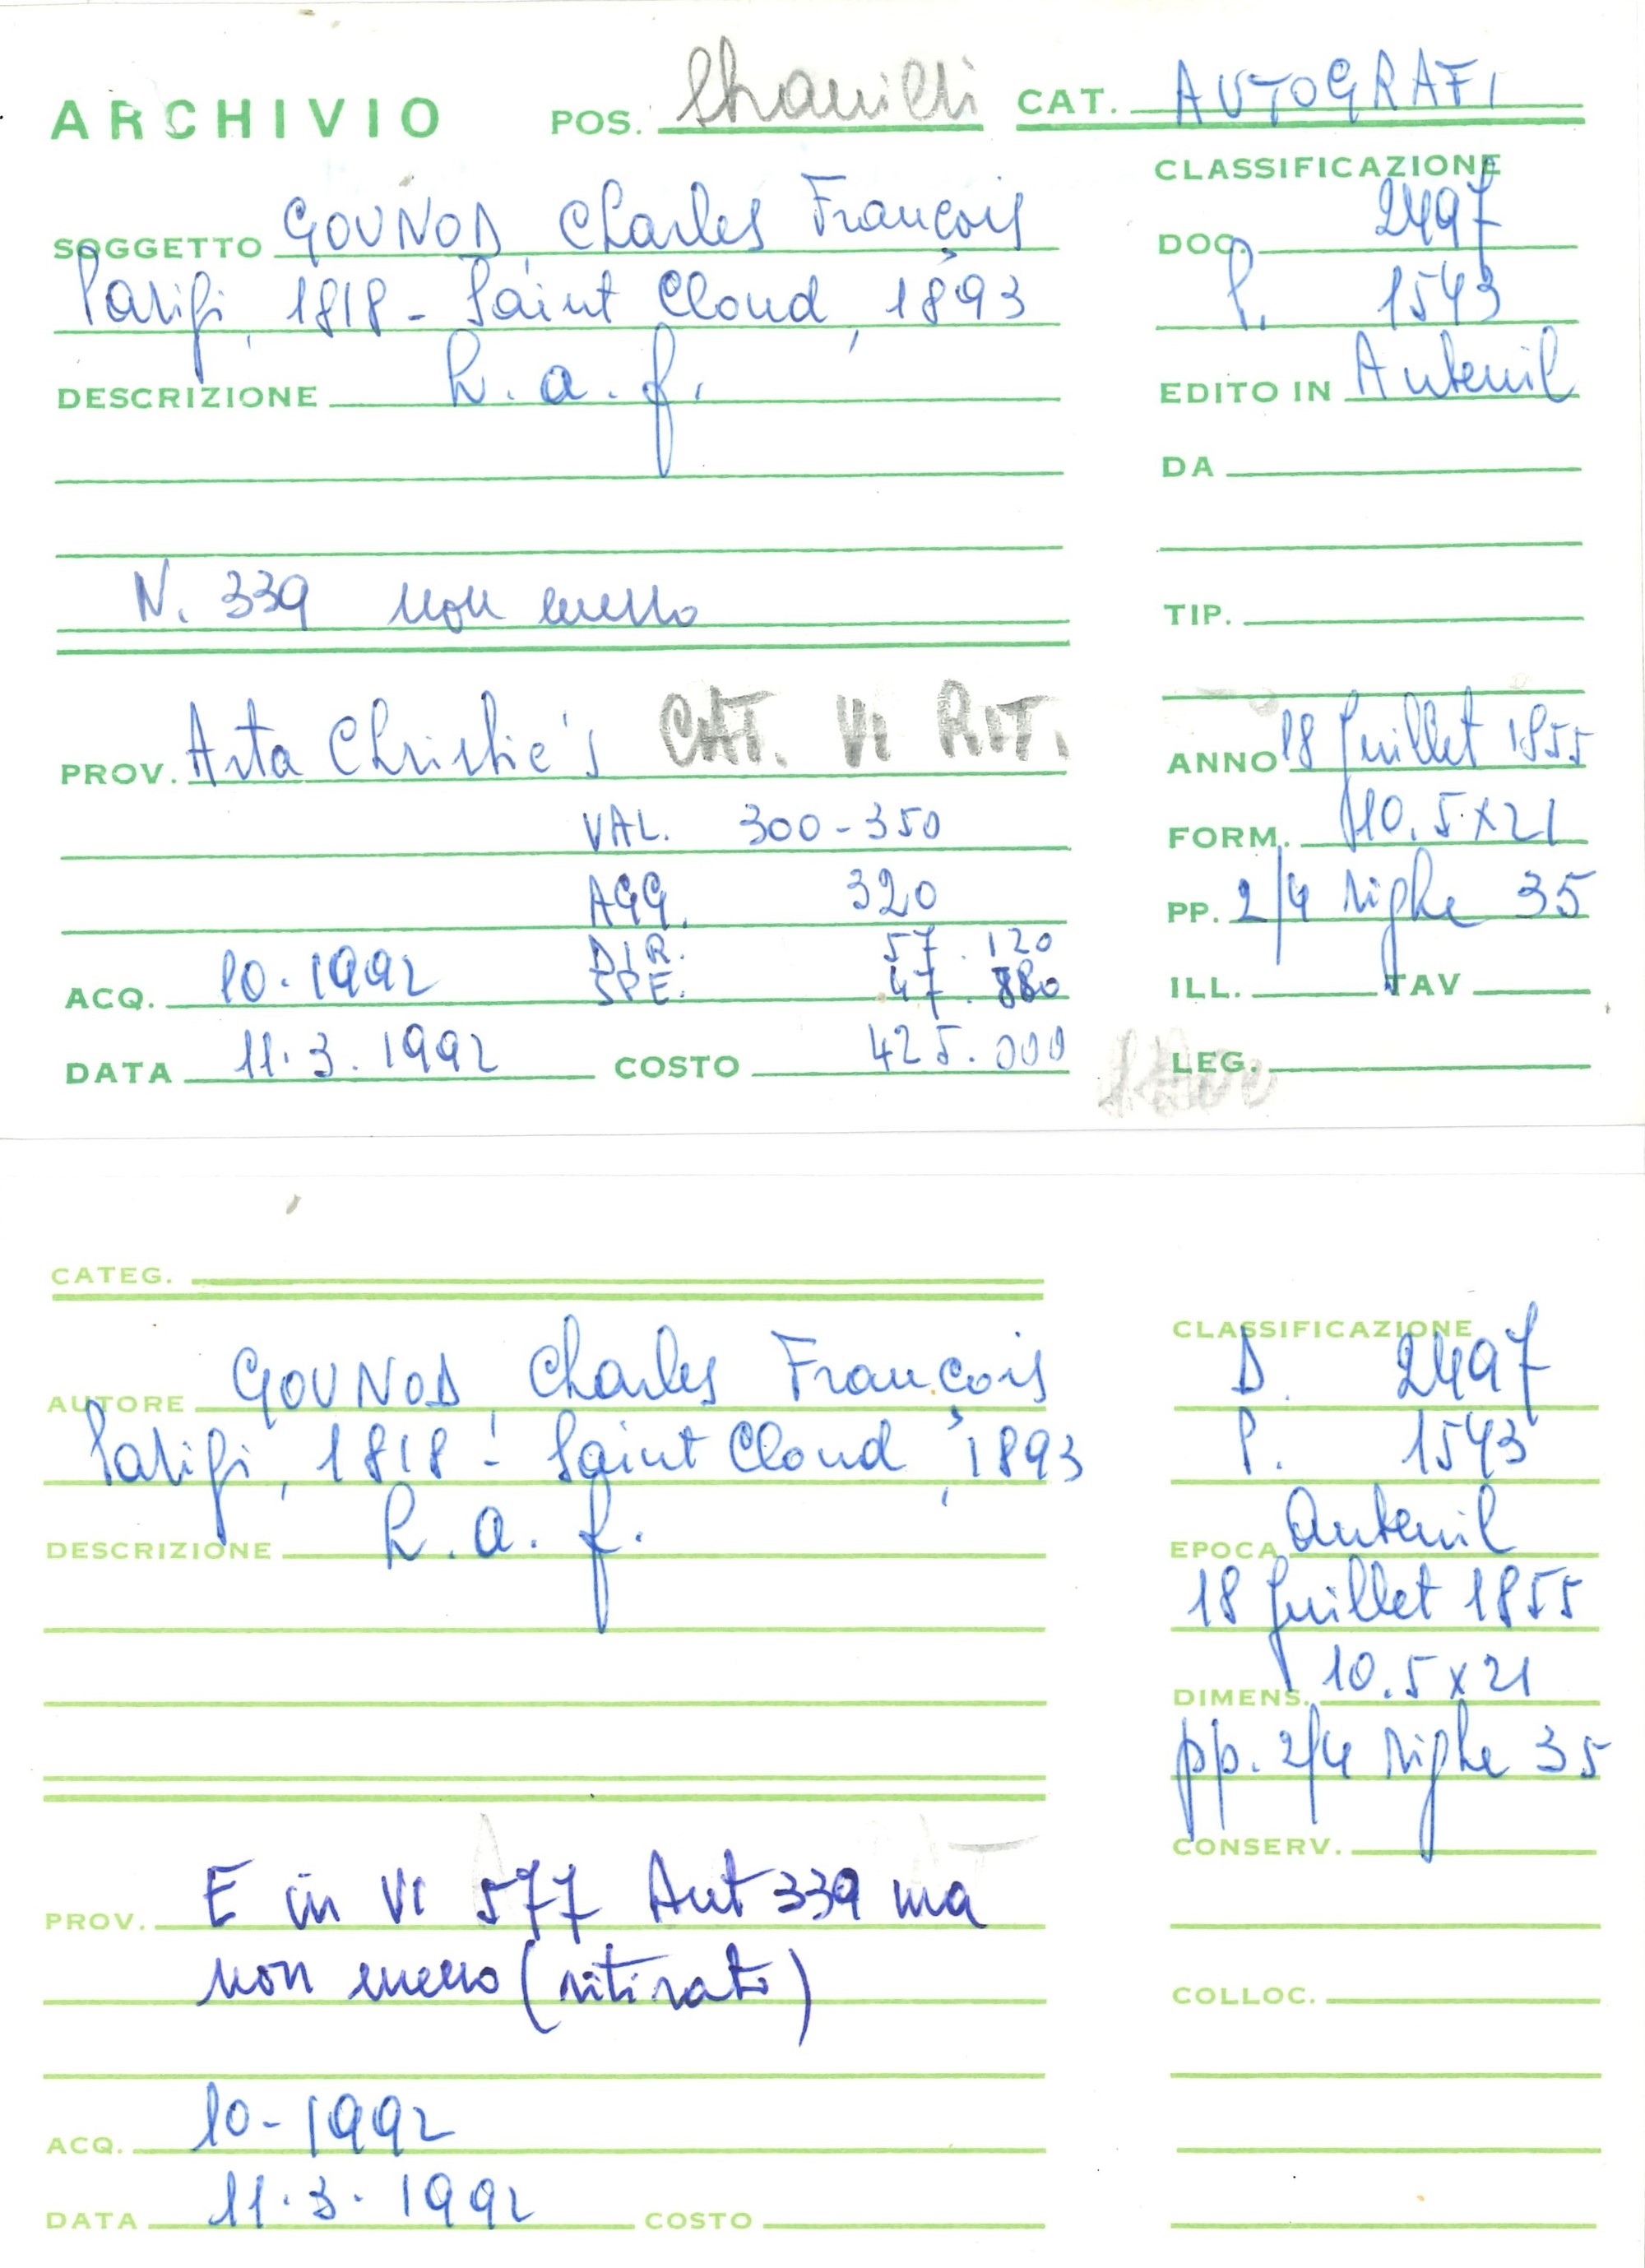 ARCHIVIO POS. CAT. AUTOGRAFI
SOGGETTO GOUNOD Charles François
Parigi, 1818 - Saint Cloud, 1893
DESCRIZIONE L. a. f.
N. 339 non messo
PROV. Asta Christie's CAT. VI RIT.
VAL. 300-350
AGG. 320
DIR. 57.120
ACQ. 10.1992 SPE. 47.880
DATA 11.3.1992 COSTO 425.000
CLASSIFICAZIONE
DOC. 2497
P. 1543
EDITO IN Auteuil
DA
TIP.
ANNO 18 Juillet 1855
FORM. 10.5x21
PP. 2/4 righe 35
ILL. TAV
LEG.
CATEG.
AUTORE GOUNOD Charles François
Parigi, 1818 - Saint Cloud, 1893
DESCRIZIONE L. a. f.
PROV. E in VI 577 Aut 339 ma
non messo (ritirato)
ACQ. 10-1992
DATA 11.3.1992 COSTO
CLASSIFICAZIONE
D. 2497
P. 1543
EPOCA Auteuil
18 Juillet 1855
DIMENS. 10.5x21
pp. 2/4 righe 35
CONSERV.
COLLOC.